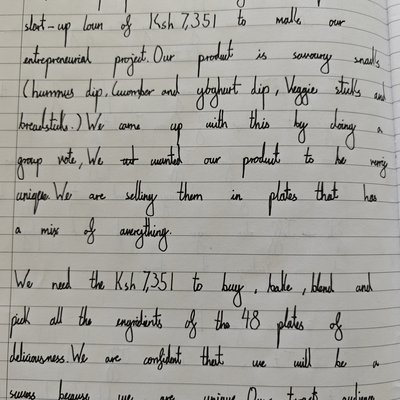 start-up loan of Ksh 7,351 to make our
entrepreneurial project. Our product is savoury snacks
(hummus dip, Cucomber and yoghurt dip, Veggie sticks and
breadsticks.) We came up with this by doing a
group vote, We wanted our product to be very
unique. We are selling them in plates that has
a mix of averything.
We need the Ksh 7,351 to buy, bake, blend and
pick all the engridients of the 48 plates of
deliciousness. We are confident that we will be a
success because we are unique. Our target audience